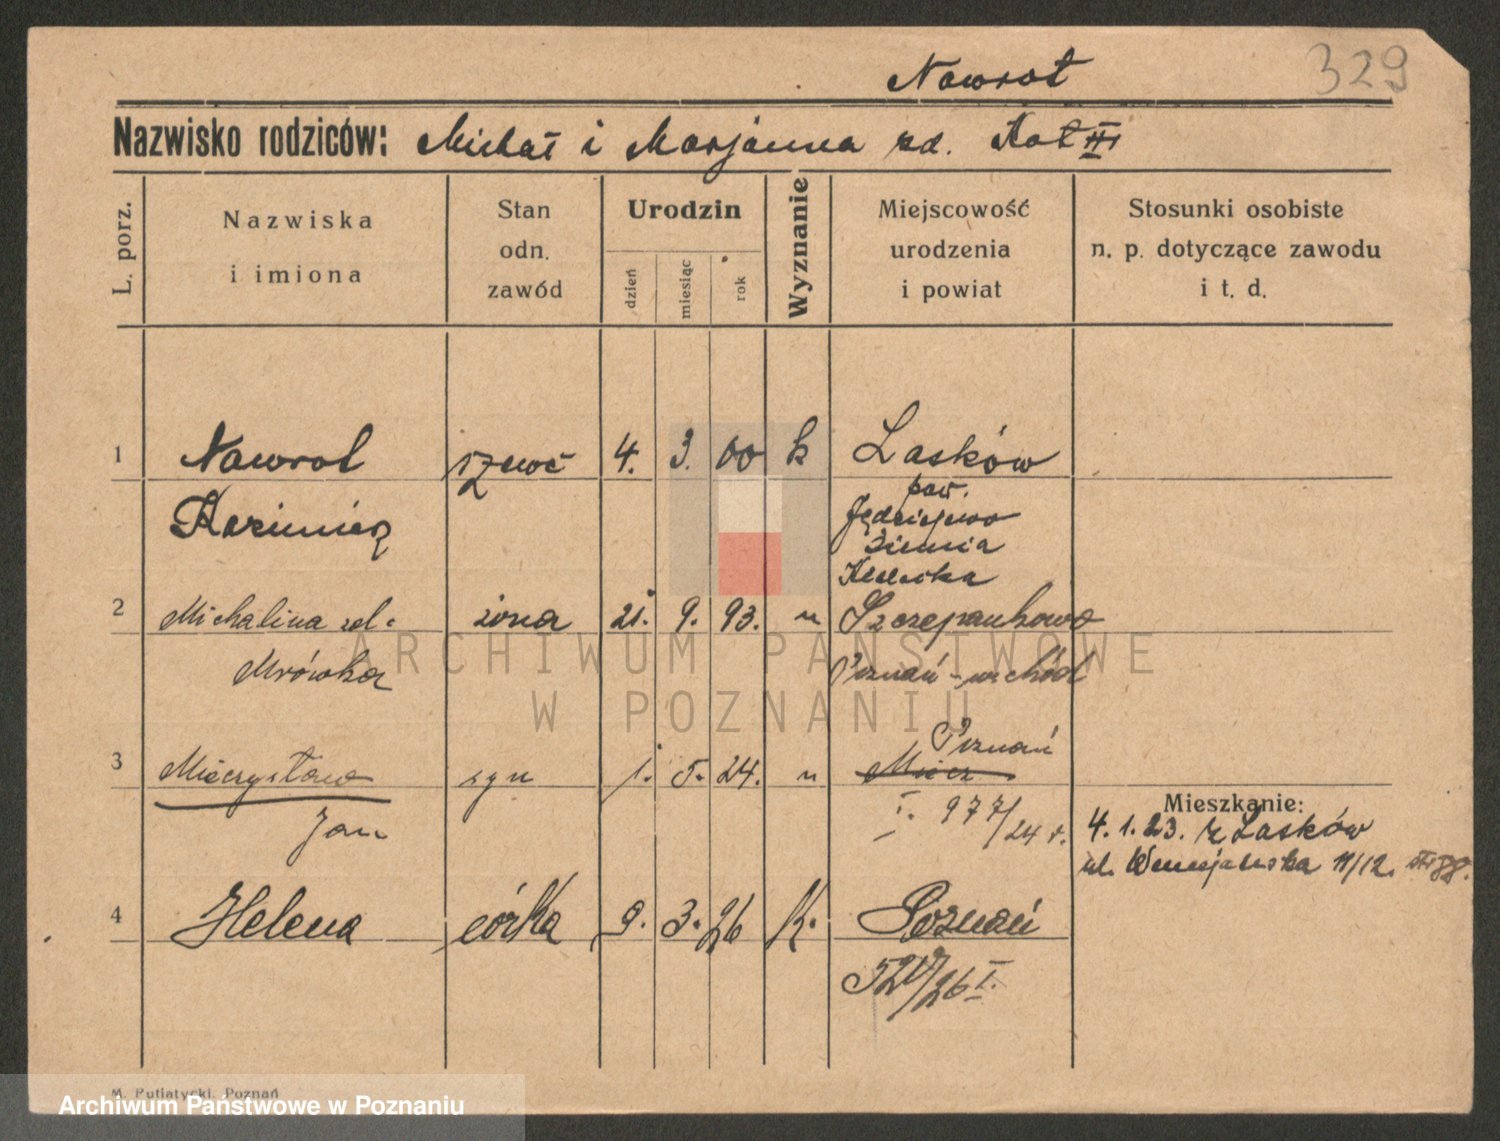 Nawrot
329
Nazwisko rodziców: Michał i Marjanna zd. Kot III
L. porz.
Nazwiska
i imiona
Stan
odn.
zawód
Urodzin
dzień
miesiąc
rok
Wyznanie
Miejscowość
urodzenia
i powiat
Stosunki osobiste
n. p. dotyczące zawodu
i t. d.
1 Nawrot szewc 4. 3. 00 k Lasków
Kazimierz
pow.
Jędrzejewo
Ziemia
Kielecka
2 Michalina zd. żona 21. 9. 93. " Szczepankowo
Mrówka Poznań-wschód
3 Mieczysław syn 1. 5. 24. " Poznań
Miecz
Jan I. 977/24 r.
Mieszkanie:
4.1.23. z Lasków
ul. 11/12.
4 Helena córka 9. 3. 26 K. Poznań
/26 I.
ARCHIWUM PAŃSTWOWE
W POZNANIU
M. Putiatycki, Poznań
Archiwum Państwowe w Poznaniu